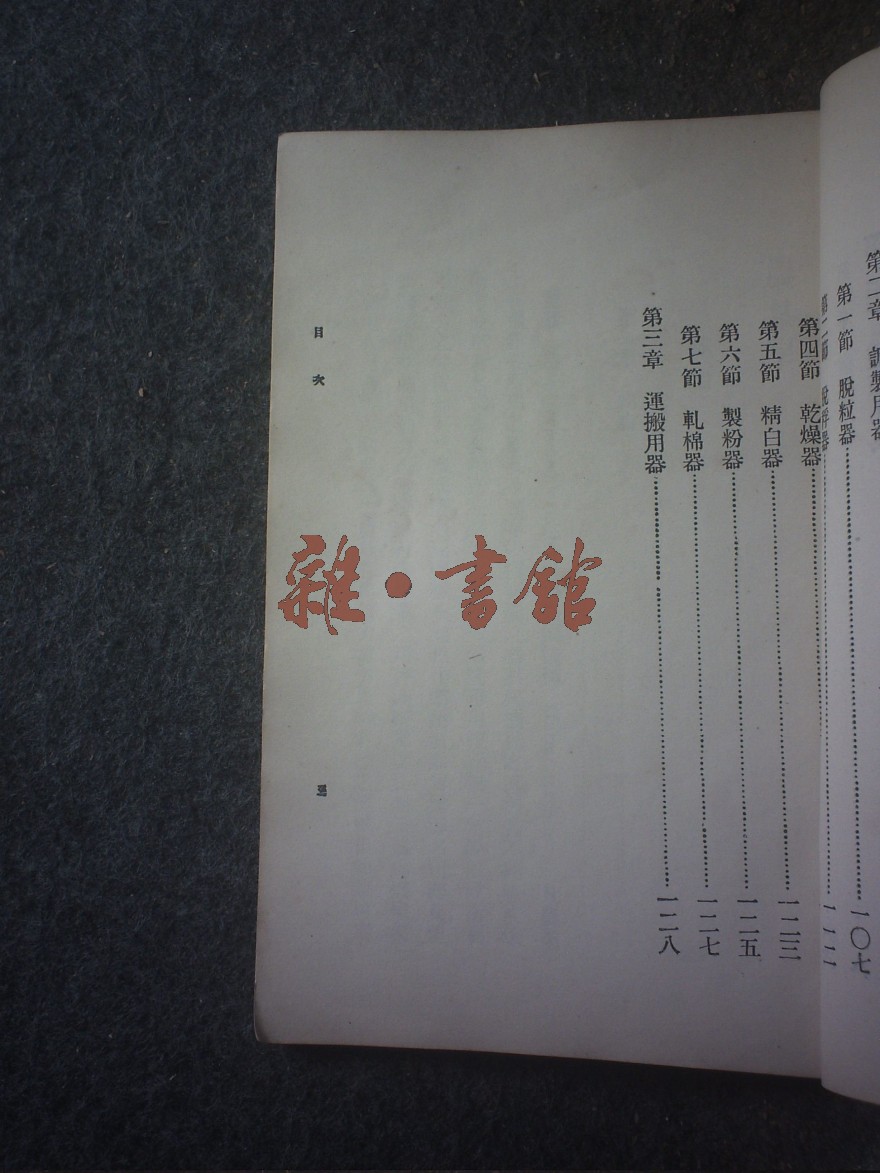 第二章　調製用器
第一節　脫粒器…………一〇七
第四節　乾燥器
第五節　精白器…………一二三
第六節　製粉器…………一二五
第七節　軋棉器…………一二七
第三章　運搬用器…………一二八
目次
雜·書館